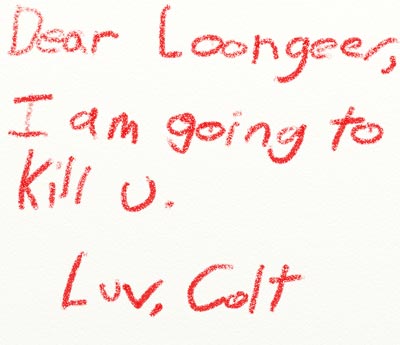 Dear Loongeer,
I am going to
kill u.
Luv, Colt